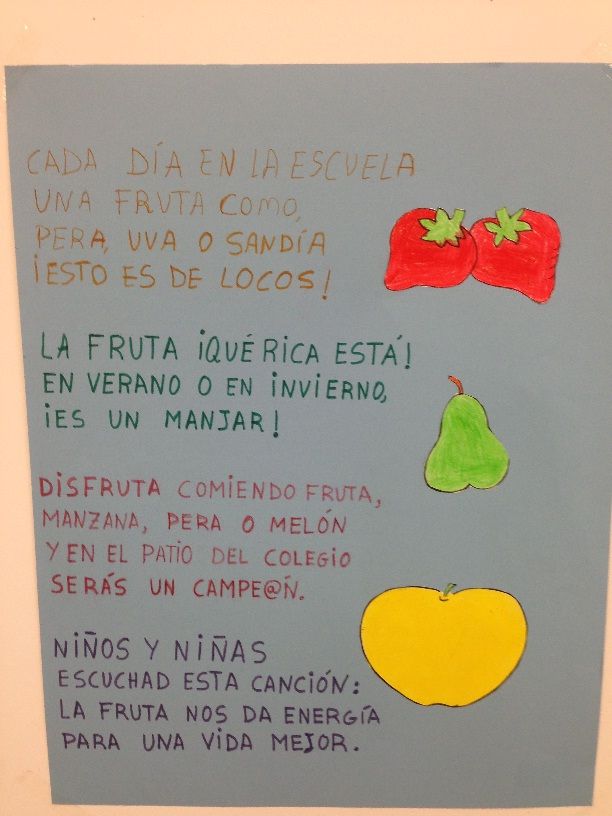 CADA DÍA EN LA ESCUELA
UNA FRUTA COMO,
PERA, UVA O SANDÍA
¡ESTO ES DE LOCOS!
LA FRUTA ¡QUÉ RICA ESTÁ!
EN VERANO O EN INVIERNO,
¡ES UN MANJAR!
DISFRUTA COMIENDO FRUTA,
MANZANA, PERA O MELÓN
Y EN EL PATIO DEL COLEGIO
SERÁS UN CAMPE@Ń.
NIÑOS Y NIÑAS
ESCUCHAD ESTA CANCIÓN:
LA FRUTA NOS DA ENERGÍA
PARA UNA VIDA MEJOR.